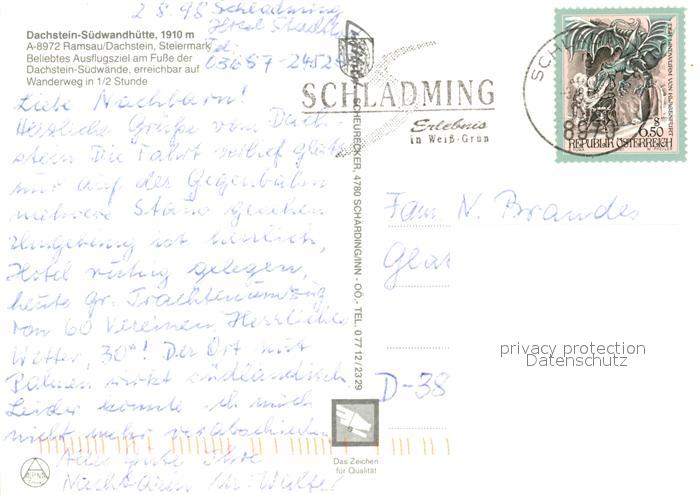 2.8.98 Schladming
Hotel Stadt
Tel.
03687-2452
Dachstein-Südwandhütte, 1910 m
A-8972 Ramsau/Dachstein, Steiermark
Beliebtes Ausflugsziel am Fuße der
Dachstein-Südwände, erreichbar auf
Wanderweg in 1/2 Stunde
Liebe Nachbarn!
Herzliche Grüße vom Dach-
stein Die Fahrt verlief glatt
nur auf der Gegenbahn
mehrere Staus gesehen
Umgebung ist herrlich,
Hotel ruhig gelegen,
heute gr. Trachtenumzug
von 60 Vereinen Herrliches
Wetter, 30°! Der Ort mit
Palmen wirkt südländisch
Leider konnte ich mich
nicht mehr verabschieden
Alles gute Ihre
Nachbarin
SCHEURECKER, 4780 SCHÄRDING/INN - OÖ.- TEL. 0 77 12 / 23 29
Das Zeichen
für Qualität
SCHLADMING
Erlebnis
in Weiß-Grün
SCHL
8970
6.50
REPUBLIK ÖSTERREICH
Fam. N. Brandes
D-38
privacy protection
Datenschutz